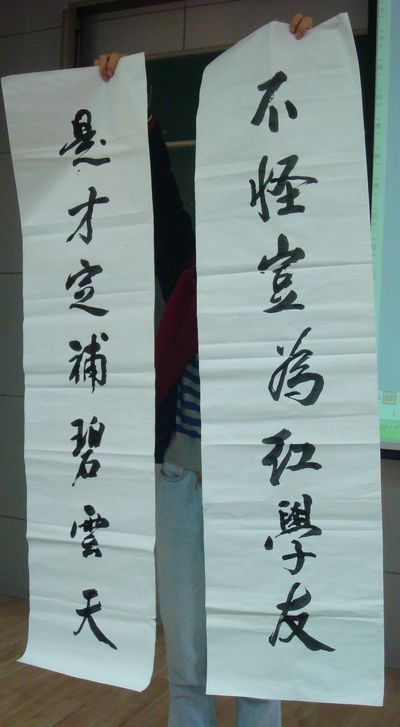 不怪豈為紅學友
是才定補碧雲天